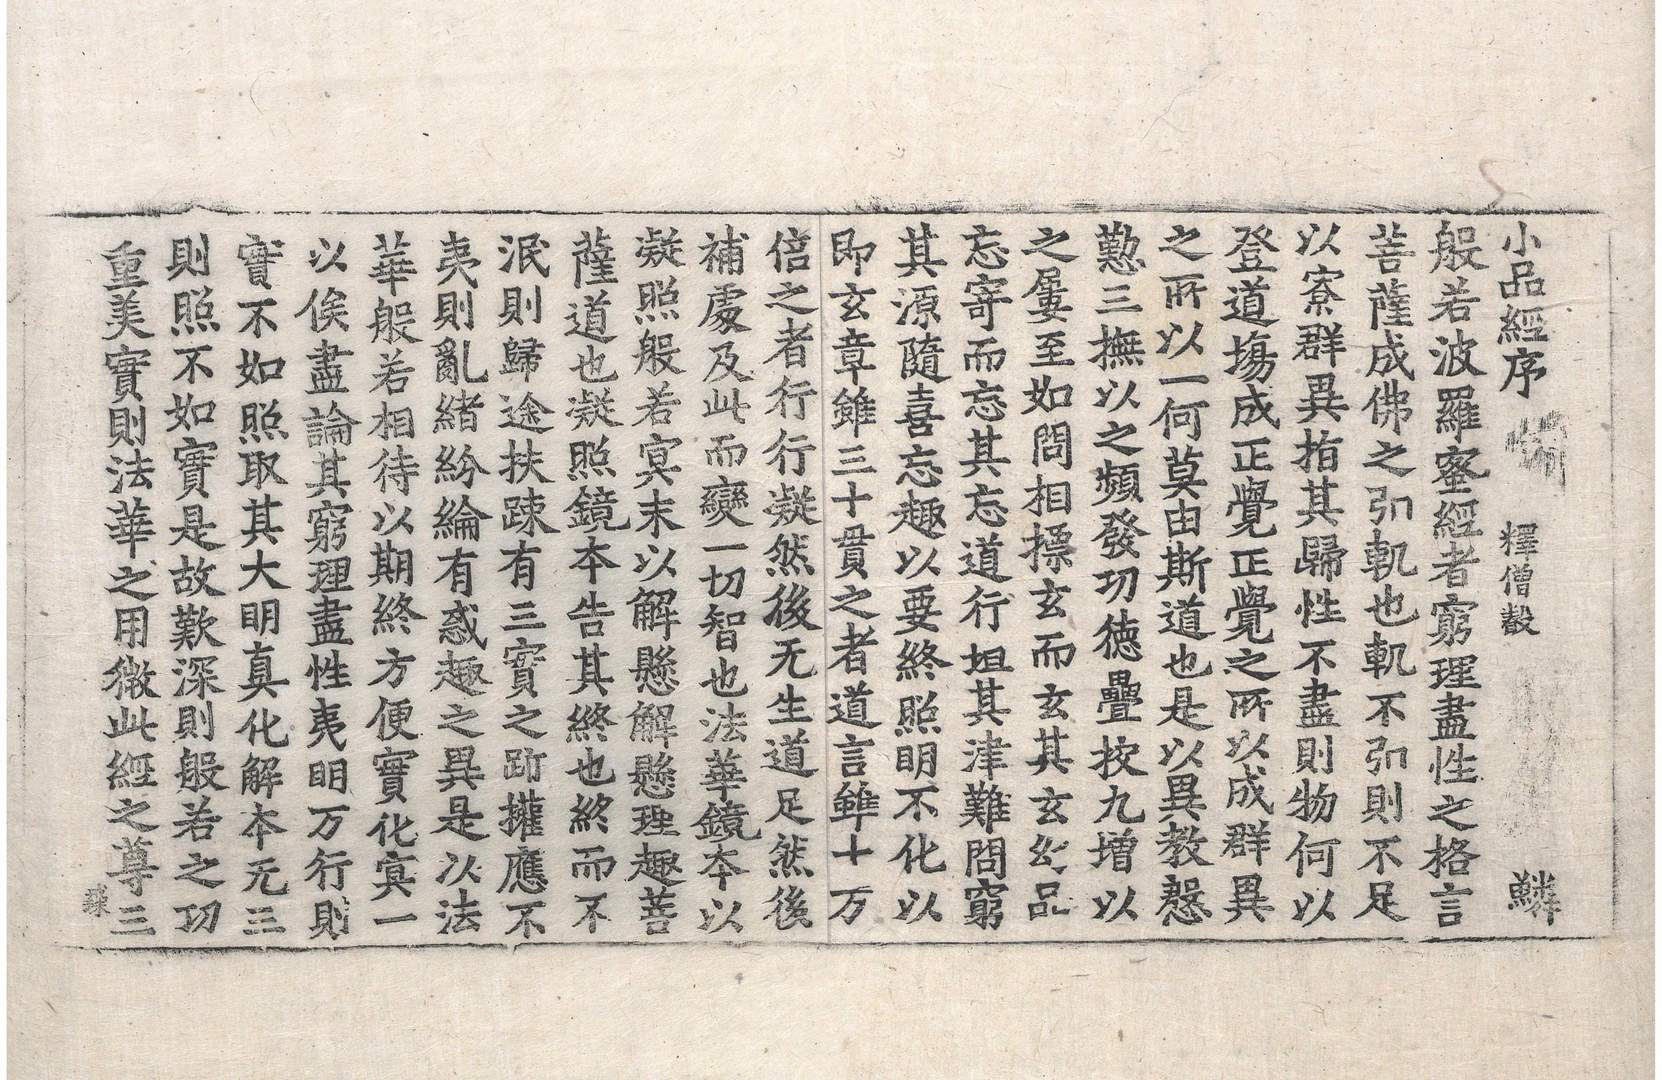 小品經序 釋僧叡 鱗
般若波羅蜜經者窮理盡性之格言
菩薩成佛之弘軌也軌不弘則不足
以寮群異指其歸性不盡則物何以
登道場成正覺正覺之所以成群異
之所以一何莫由斯道也是以異教慇
懃三撫以之頻發功徳疊校九増以
之屢至如問相摽玄而玄其玄幺品
忘寄而忘其忘道行坦其津難問窮
其源隨喜忘趣以要終照明不化以
即玄章雖三十貫之者道言雖十万
倍之者行行凝然後无生道足然後
補處及此而變一切智也法華鏡本以
凝照般若冥末以解懸解懸理趣菩
薩道也凝照鏡本告其終也終而不
泯則歸途扶疎有三實之跡擁應不
夷則亂緒紛綸有惑趣之異是以法
華般若相待以期終方便實化冥一
以俟盡論其窮理盡性夷明万行則
實不如照取其大明真化解本无三
則照不如實是故歎深則般若之功
重美實則法華之用微此經之尊三